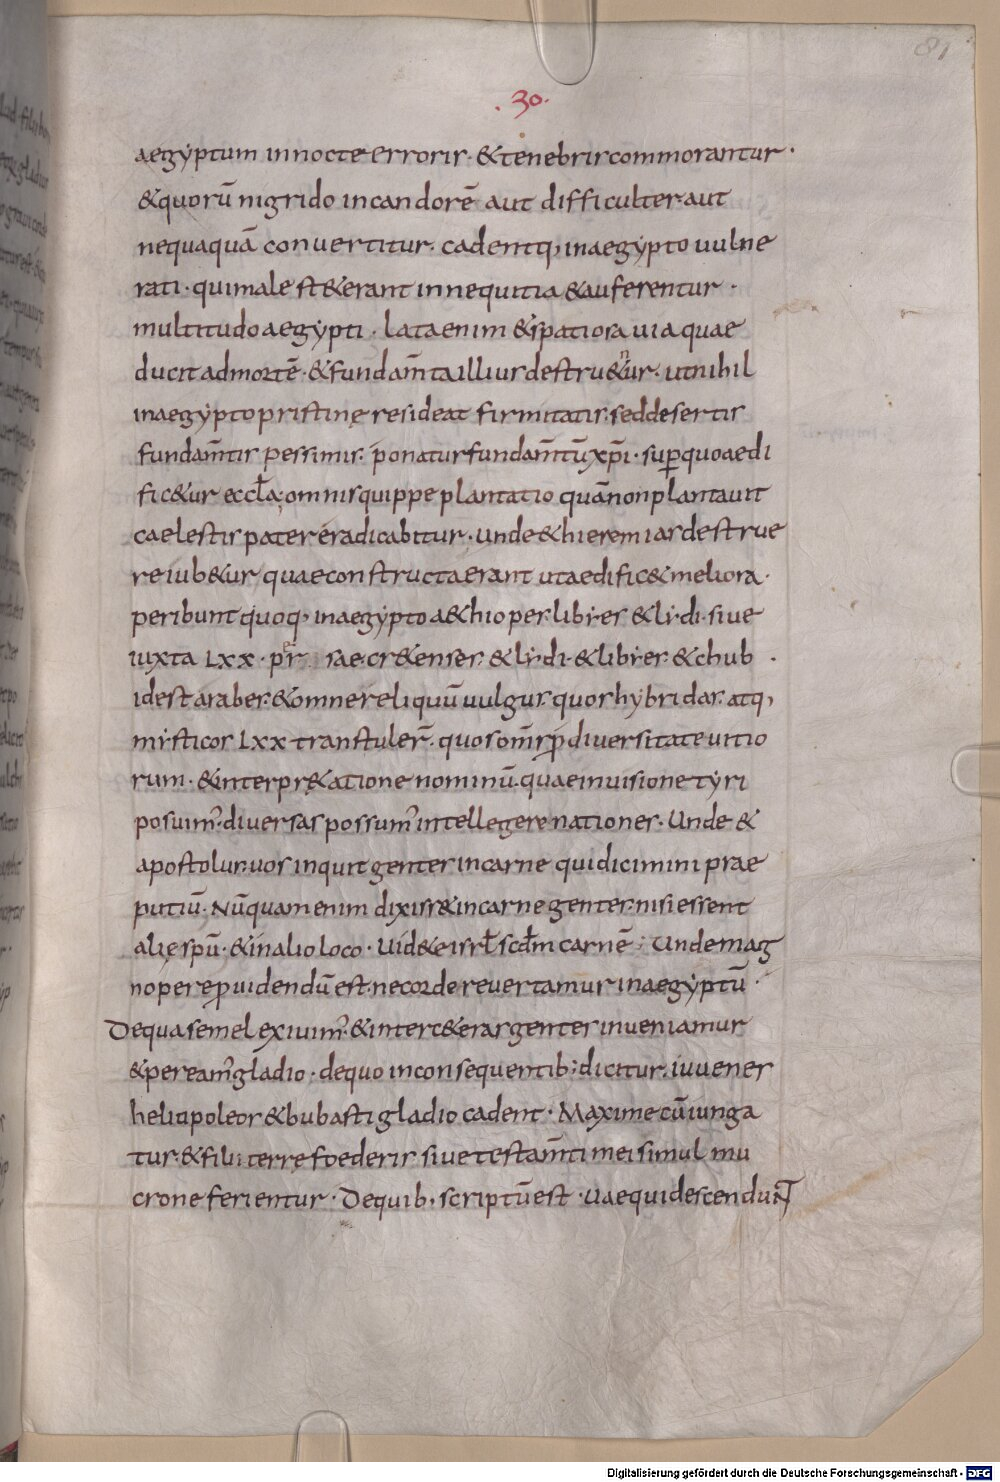 81
.30.
aegyptum innocte erroris· &tenebris commorantur·
&quorū nigrido incandorē aut difficulter aut
nequaquā convertitur. cadentq; inaegypto vulne
rati· quimale st&erant innequitia &auferentur·
multitudo aegypti· lata enim &spatiosa via quae
ducit admortē· &fundam̄ta illius destru&ur. utnihil
inaegypto pristinę resideat firmitatis, sed desertis
fundam̄tis pessimis. ponatur fundam̄tū xp̄i· sup̱ quo aedi
fic&ur eccła; omnis quippe plantatio quā non plantavit
caelestis pater eradicabitur· unde &hieremias destrue
re iub&ur quae constructa erant ut aedific& meliora·
peribunt quoq; inaegypto a&hiopes. libyes &lydi. sive
iuxta Lxx· persae. cr&enses. &lydi· &libyes. &chub·
idest arabes. &omne reliquū vulgus. quos hybridas. atq;
misticos Lxx transtuler̄. quos om̄s p̱ diversitate vitio
rum· &interpr&atione nominū. quae invisione tyri
posuim᾿. diversas possum᾿ intellegere nationes. Unde &
apostolus. vos inquit gentes in carne qui dicimini prae
putiū· Nūquam enim dixiss& in carne gentes. nisi essent
alię spū· &in alio loco· Uid&e isrł scd̄m carnē· Unde mag
nopere p̱videndū est. necorde revertamur inaegyptū·
De qua semel exivim᾿. &inter c&eras gentes inveniamur
&peream᾿ gladio· de quo in consequentib; dicitur. iuvenes
heliupoleos &bubasti gladio cadent· Maxime cū iunga
tur. &filii terre foederis sive testam̄ti mei simul mu
crone ferientur· De quib; scriptū est· Uae qui descendunt
Digitalisierung gefördert durch die Deutsche Forschungsgemeinschaft - DFG